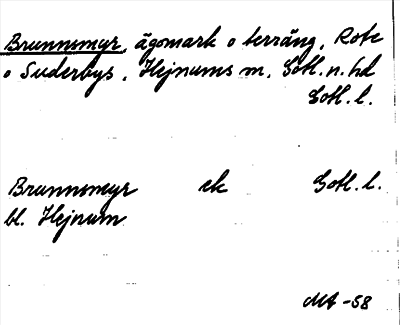 Brunnsmyr, ägomark o terräng, Rote
o Suderbys, Hejnums sn, Gotl. n. hd
Gotl. l.
Brunnsmyr ek Gotl. l.
bl. Hejnum
MA -58